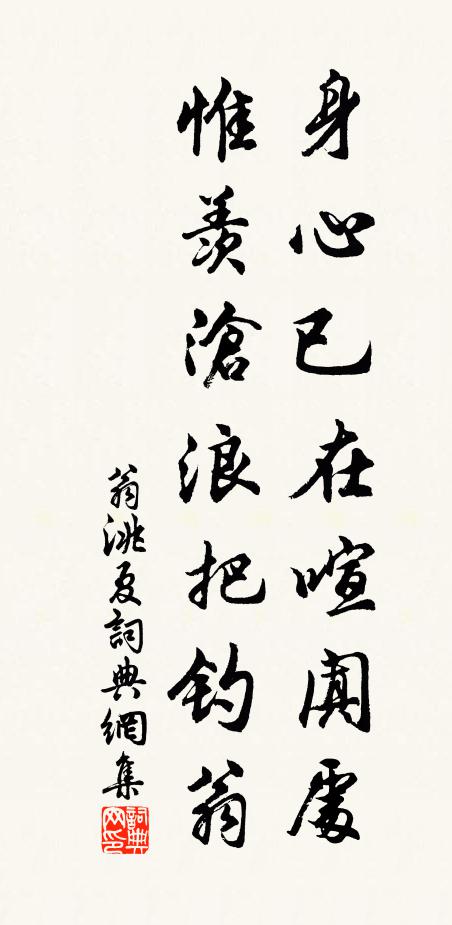 身心已在喧闐處
惟羨滄浪把釣翁
翁洮夏詞典網集
詞典網印